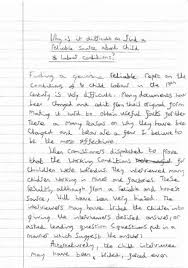 Why is it difficult to find a
reliable source about child
labour conditions?
Finding a genuine, reliable paper on the
conditions of child labour in the 19th
Century is very difficult. Many documents have
been changed and edit from their original form
Making it will to obtain useful facts further
There are many reasons as why they have been
changed and below are a few I believe to
be the most effective.
When Comissioners dispatched to prove
that the working conditions for
children were awful. They interviewed many
children working in Mines and Factories. These
results, although from a reliable and honest
source, will have been very biased. The
interviewers may have bribed the children into
giving the interviewers desired answer, or
asked leading questions (questions put in a
manner which suggests the answer).
Alternatively, the child interviewee
may have been killed, joked even